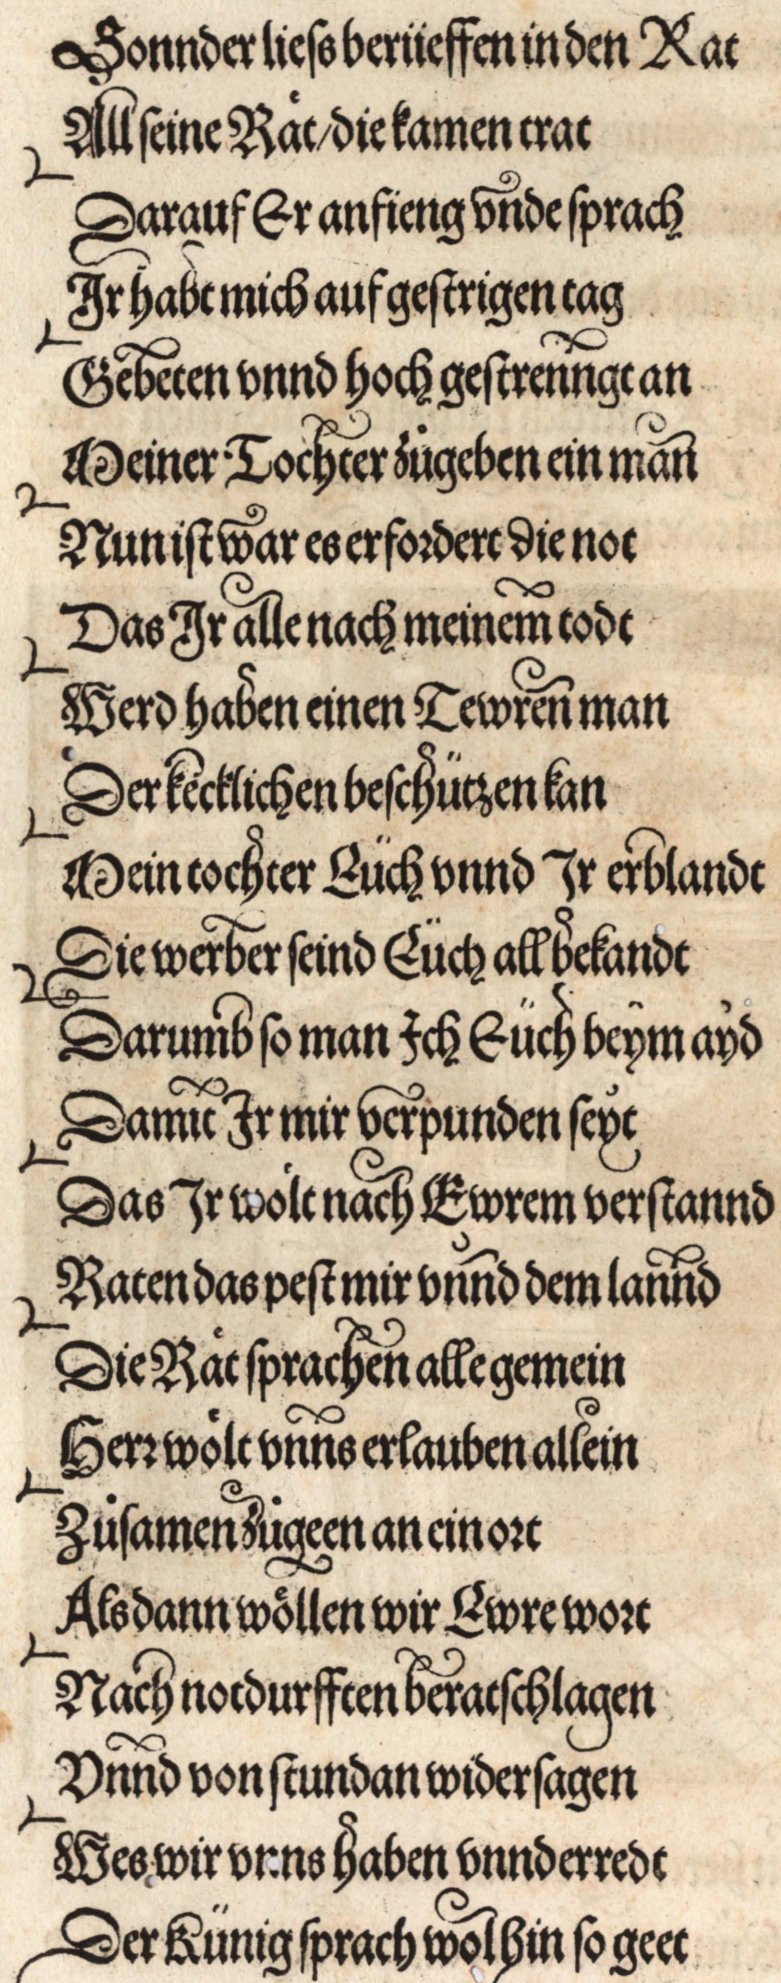 Sonnder liess berüeffen in den Rat
All seine Rät/die kamen trat
Darauf Er anfieng vnnde sprach
Ir habt mich auf gestrigen tag
Gebeten vnnd hoch gestrenngt an
Meiner Tochter zůgeben ein man
Nun ist war es erfordert die not
Das Ir alle nach meinem todt
Werd haben einen Tewren man
Der kecklichen beschützen kan
Mein tochter Eüch vnnd Ir erblandt
Die werber seind Eüch all bekandt
Darumb so man Ich Eüch beym ayd
Damit Ir mir verpunden seyt
Das Ir wölt nach Ewrem verstannd
Raten das pest mir vnnd dem lannd
Die Rät sprachen alle gemein
Herr wölt vnns erlauben allein
Zůsamen zůgeen an ein ort
Alsdann wöllen wir Ewre wort
Nach notdurfften beratschlagen
Vnnd von stundan widersagen
Wes wir vnns haben vnnderredt
Der Künig sprach wolhin so geet